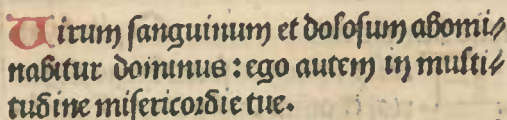 Uirum ſanguinum et doloſum abomi⸗
nabitur dominus : ego autem in multi⸗
tudine miſericordie tue.